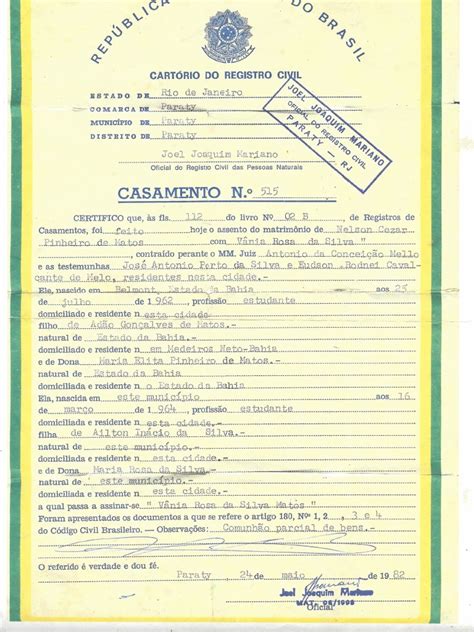 REPÚBLICA DO BRASIL
CARTÓRIO DO REGISTRO CIVIL
ESTADO DE Rio de Janeiro
COMARCA DE Paraty
MUNICÍPIO DE Paraty
DISTRITO DE Paraty
JOEL JOAQUIM MARIANO
OFICIAL DO REGISTRO CIVIL
PARATY — RJ
Joel Joaquim Mariano
Oficial do Registro Civil das Pessoas Naturais
CASAMENTO N.º 515
CERTIFICO que, às fls. 112 do livro Nº 02 B, de Registros de
Casamentos, foi feito hoje o assento do matrimônio de Nelson Cezar
Pinheiro de Matos com "Vânia Rosa da Silva"
, contraído perante o MM. Juiz Antonio da Conceição Mello
e as testemunhas José Antonio Porto da Silva e Eudson Rodnei Caval-
cante de Melo, residentes nesta cidade.-
Ele, nascido em Belmont, Estado da Bahia aos 25
de julho de 1962, profissão estudante
domiciliado e residente n esta cidade-
filho de Adão Gonçalves de Matos.-
natural de Estado da Bahia.-
domiciliado e residente n em Medeiros Neto-Bahia
e de Dona Maria Elita Pinheiro de Matos.-
natural de Estado da Bahia
domiciliada e residente n o Estado da Bahia
Ela, nascida em este município aos 16
de março de 1964, profissão estudante
domiciliada e residente n esta cidade.-
filha de Ailton Inácio da Silva.-
natural de este município.-
domiciliado e residente n esta cidade.-
e de Dona Maria Rosa da Silva.-
natural de este município.-
domiciliada e residente n esta cidade.-
a qual passa a assinar-se " Vânia Rosa da Silva Matos "
Foram apresentados os documentos a que se refere o artigo 180, Nºs 1, 2, 3 e 4
do Código Civil Brasileiro. — Observações: Comunhão parcial de bens.-
O referido é verdade e dou fé.
Paraty 24 de maio de 1982
Joel Joaquim Mariano
MAT. 06/1998
Oficial